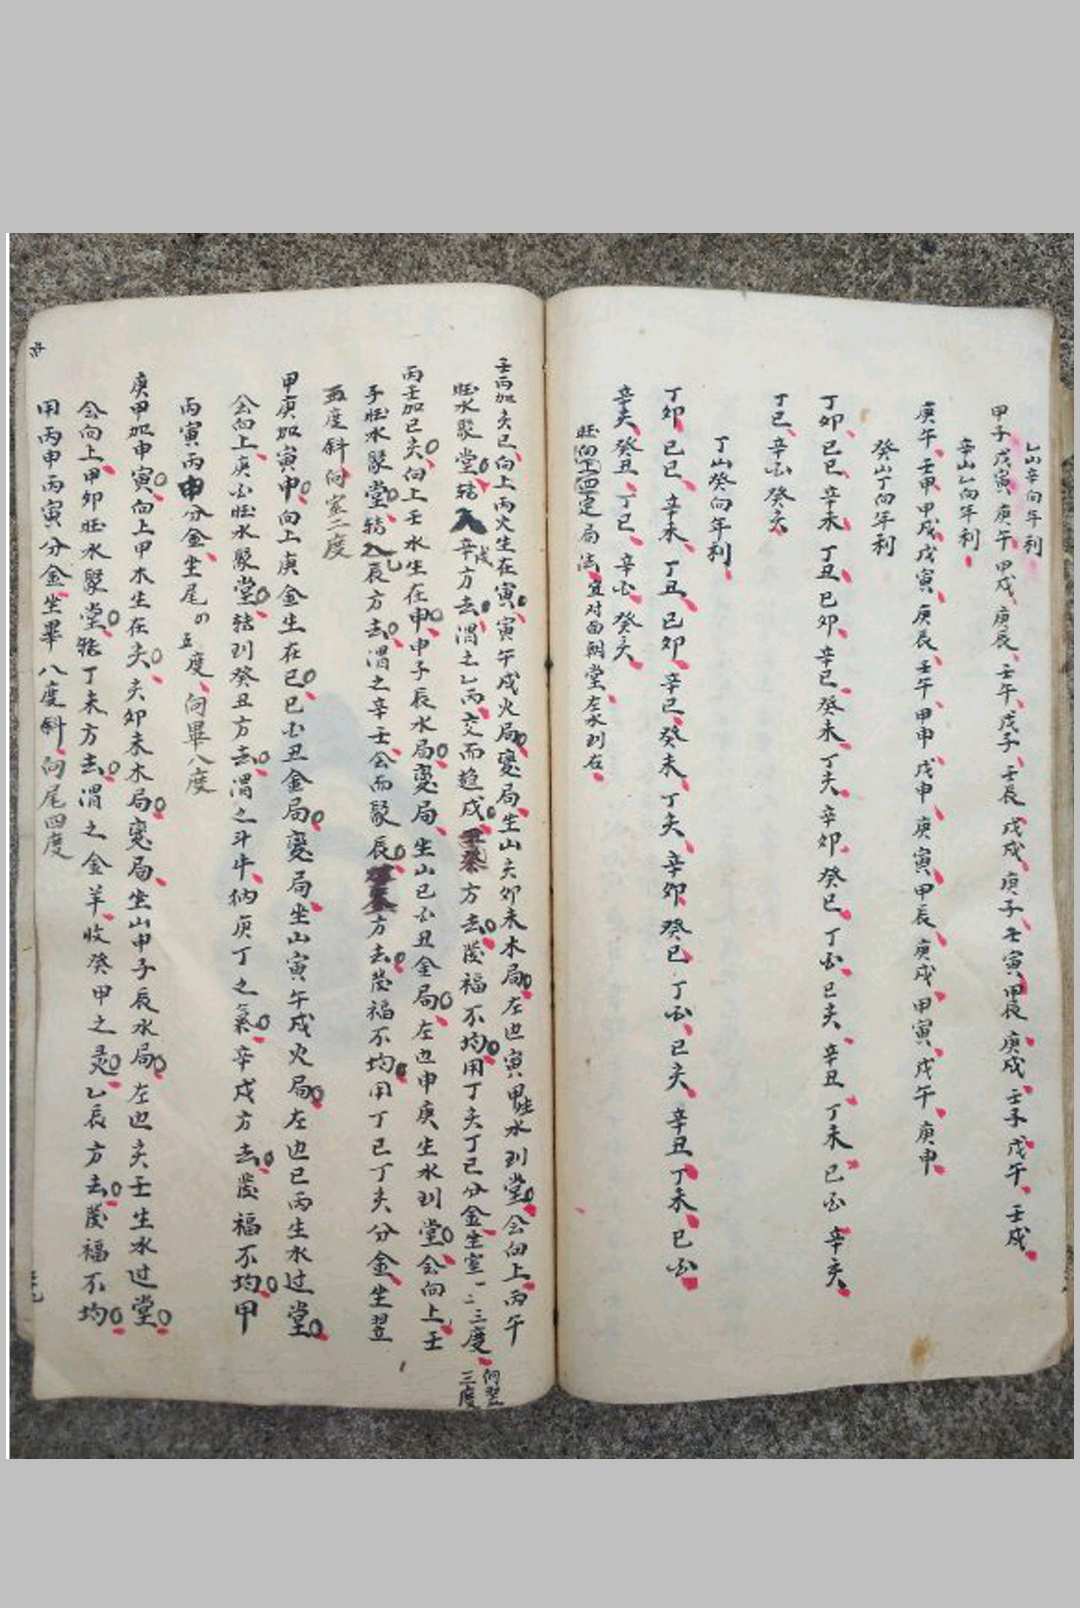 乙山辛向年利
甲子戊寅、庚午、甲戌、庚辰、壬午、戊子、壬辰、戊戌、庚子、壬寅、甲辰、庚戌、壬子、戊午、壬戌、
辛山乙向年利、
庚午、壬申、甲戌、戊寅、庚辰、壬午、甲申、戊申、庚寅、甲辰、庚戌、甲寅、戊午、庚申、
癸山丁向年利
丁卯、己巳、辛未、丁丑、己卯、辛巳、癸未、丁亥、辛卯、癸巳、丁酉、己亥、辛丑、丁未、己酉、辛亥、
丁巳、辛酉、癸亥、
丁山癸向年利、
丁卯、己巳、辛未、丁丑、己卯、辛巳、癸未、丁亥、辛卯、癸巳、丁酉、己亥、辛丑、丁未、己酉、
辛亥、癸丑、丁巳、辛酉、癸亥、
旺向定局法、宜对面朝堂、左水到右、
壬丙加亥巳、向上丙火生在寅、寅午戌火局、變局、坐山亥卯未木局、左边寅甲生水到堂、会向上、丙午
旺水聚堂、转入辛戌方去、谓之乙丙交而趋戌方去、發福不均、用丁亥丁巳分金、坐室一二三度、向翌三度
丙壬加巳亥、向上壬水生在申、申子辰水局、變局、坐山巳酉丑金局、左边申庚生水到堂、会向上、壬
子旺水聚堂、转入乙辰方去、谓之辛壬会而聚辰方去、發福不均、用丁巳丁亥分金、坐翌
五度斜、向室二度
甲庚加寅申、向上庚金生在巳、巳酉丑金局、變局、坐山寅午戌火局、左边巳丙生水过堂、
会向上、庚酉旺水聚堂、转到癸丑方去、谓之斗牛纳庚丁之氣、辛戌方去、發福不均、甲
丙寅丙申分金、坐尾五度、向畢八度
庚甲加申寅、向上甲木生在亥、亥卯未木局、變局、坐山申子辰水局、左边亥壬生水过堂、
会向上、甲卯旺水聚堂、转丁未方去、谓之金羊、收癸甲之灵、乙辰方去、發福不均、
用丙申丙寅分金、坐畢八度斜、向尾四度